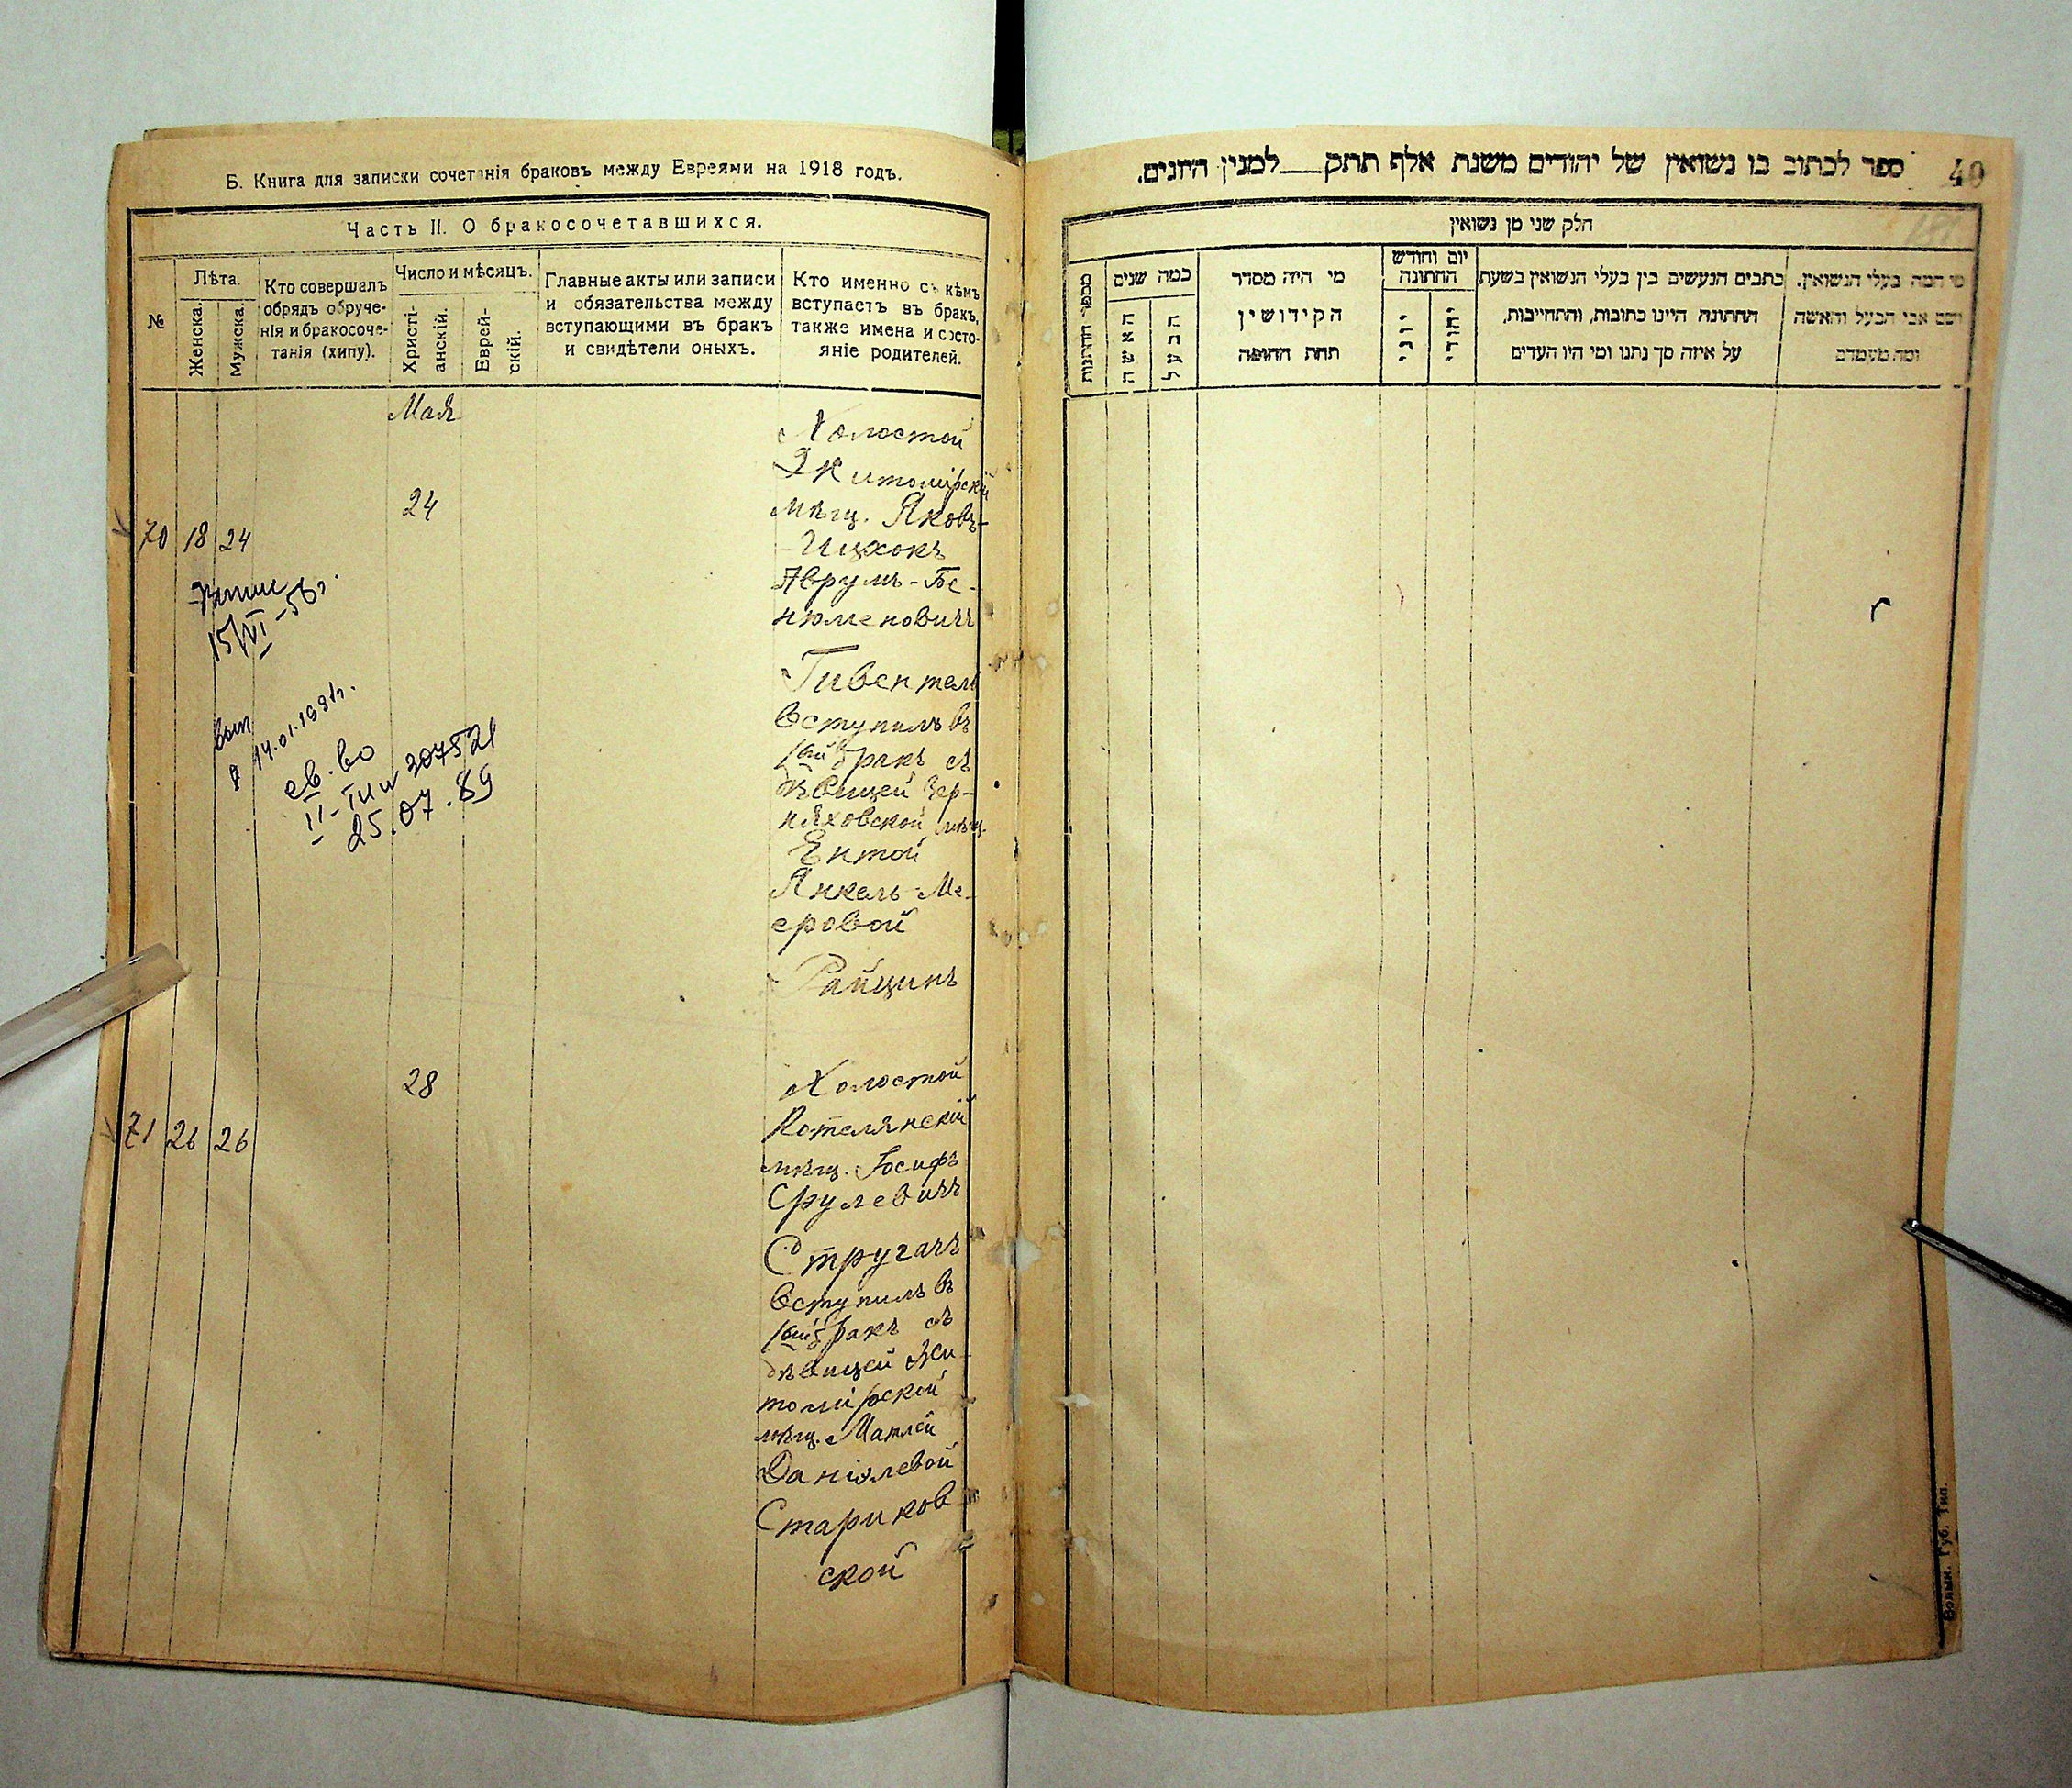 Б. Книга для записки сочетанія браковъ между Евреями на 1918 годъ.
Часть II. О бракосочетавшихся.
№
Лѣта.
Женска.
Мужска.
Кто совершалъ
обрядъ обруче-
нія и бракосоче-
танія (хипу).
Число и мѣсяцъ.
Христі-
анскій.
Еврей-
скій.
Главные акты или записи
и обязательства между
вступающими въ бракъ
и свидѣтели оныхъ.
Кто именно съ кѣмъ
вступаетъ въ бракъ,
также имена и состо-
яніе родителей.
Мая
70 18 24
24
Холостой
Житомірскій
мѣщ. Яковъ-
Ицхокъ
Аврумъ-Бе-
нюменовичъ
Гивентель
вступилъ въ
1ый бракъ съ
дѣвицей Чер-
няховской мѣщ.
Ентой
Янкель-Ме-
еровой
Райцинъ
15/VI-56г.
вып
14.01.1991г.
св.во
II-ТИ № 307521
25.07.89
71 26 26
28
Холостой
Котелянскій
мѣщ. Іосифъ
Срулевичъ
Стругачъ
вступилъ въ
1ый бракъ съ
дѣвицей Жи-
томірской
мѣщ. Матлей
Даніолевой
Стариков-
ской
40
ספר לכתוב בו נשואין של יהודים משנת אלף תתק___ למנין היונים.
חלק שני מן נשואין
מספר החתונות
כמה שנים
האשה
הבעל
מי היה מסדר
הקידושין
תחת החופה
יום וחודש
החתונה
יוני
יהודי
כתבים הנעשים בין בעלי הנשואין בשעת
החתונה היינו כתובות, והתחייבות,
על איזה סך נתנו ומי היו העדים
מי המה בעלי הנשואין.
ושם אבי הבעל והאשה
ומה מעמדם
Волын. Губ. Тип.